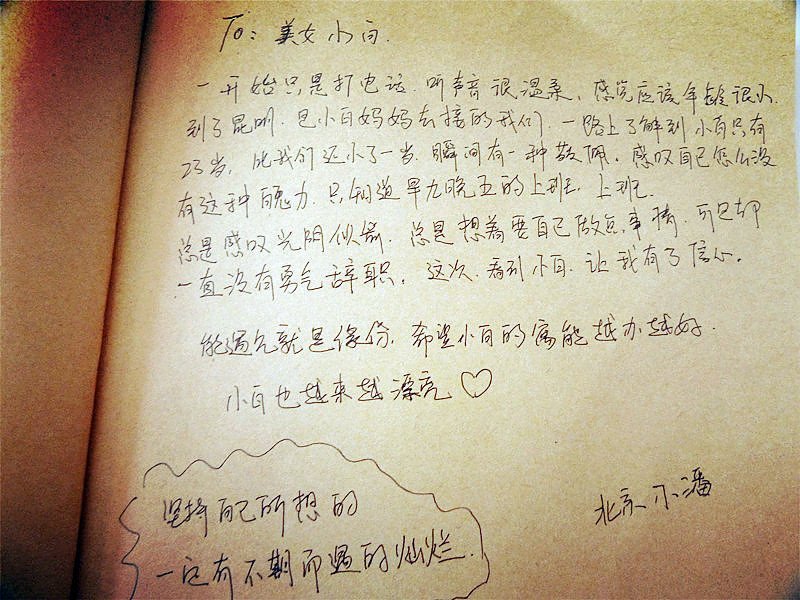 To: 美女小白.
一开始只是打电话. 听声音很温柔, 感觉应该年龄很小.
到了昆明. 是小白妈妈去接的我们. 一路上了解到小白只有
23岁, 比我们还小了一岁. 瞬间有一种敬佩. 感叹自己怎么没
有这种魄力. 只知道早九晚五的上班. 上班.
总是感叹光阴似箭. 总是想着要自己做点事情. 可是却
一直没有勇气辞职. 这次. 看到小白. 让我有了信心.
能遇见就是缘份. 希望小白的店能越办越好.
小白也越来越漂亮♡
坚持自己所想的
一定有不期而遇的灿烂.
北京小潘